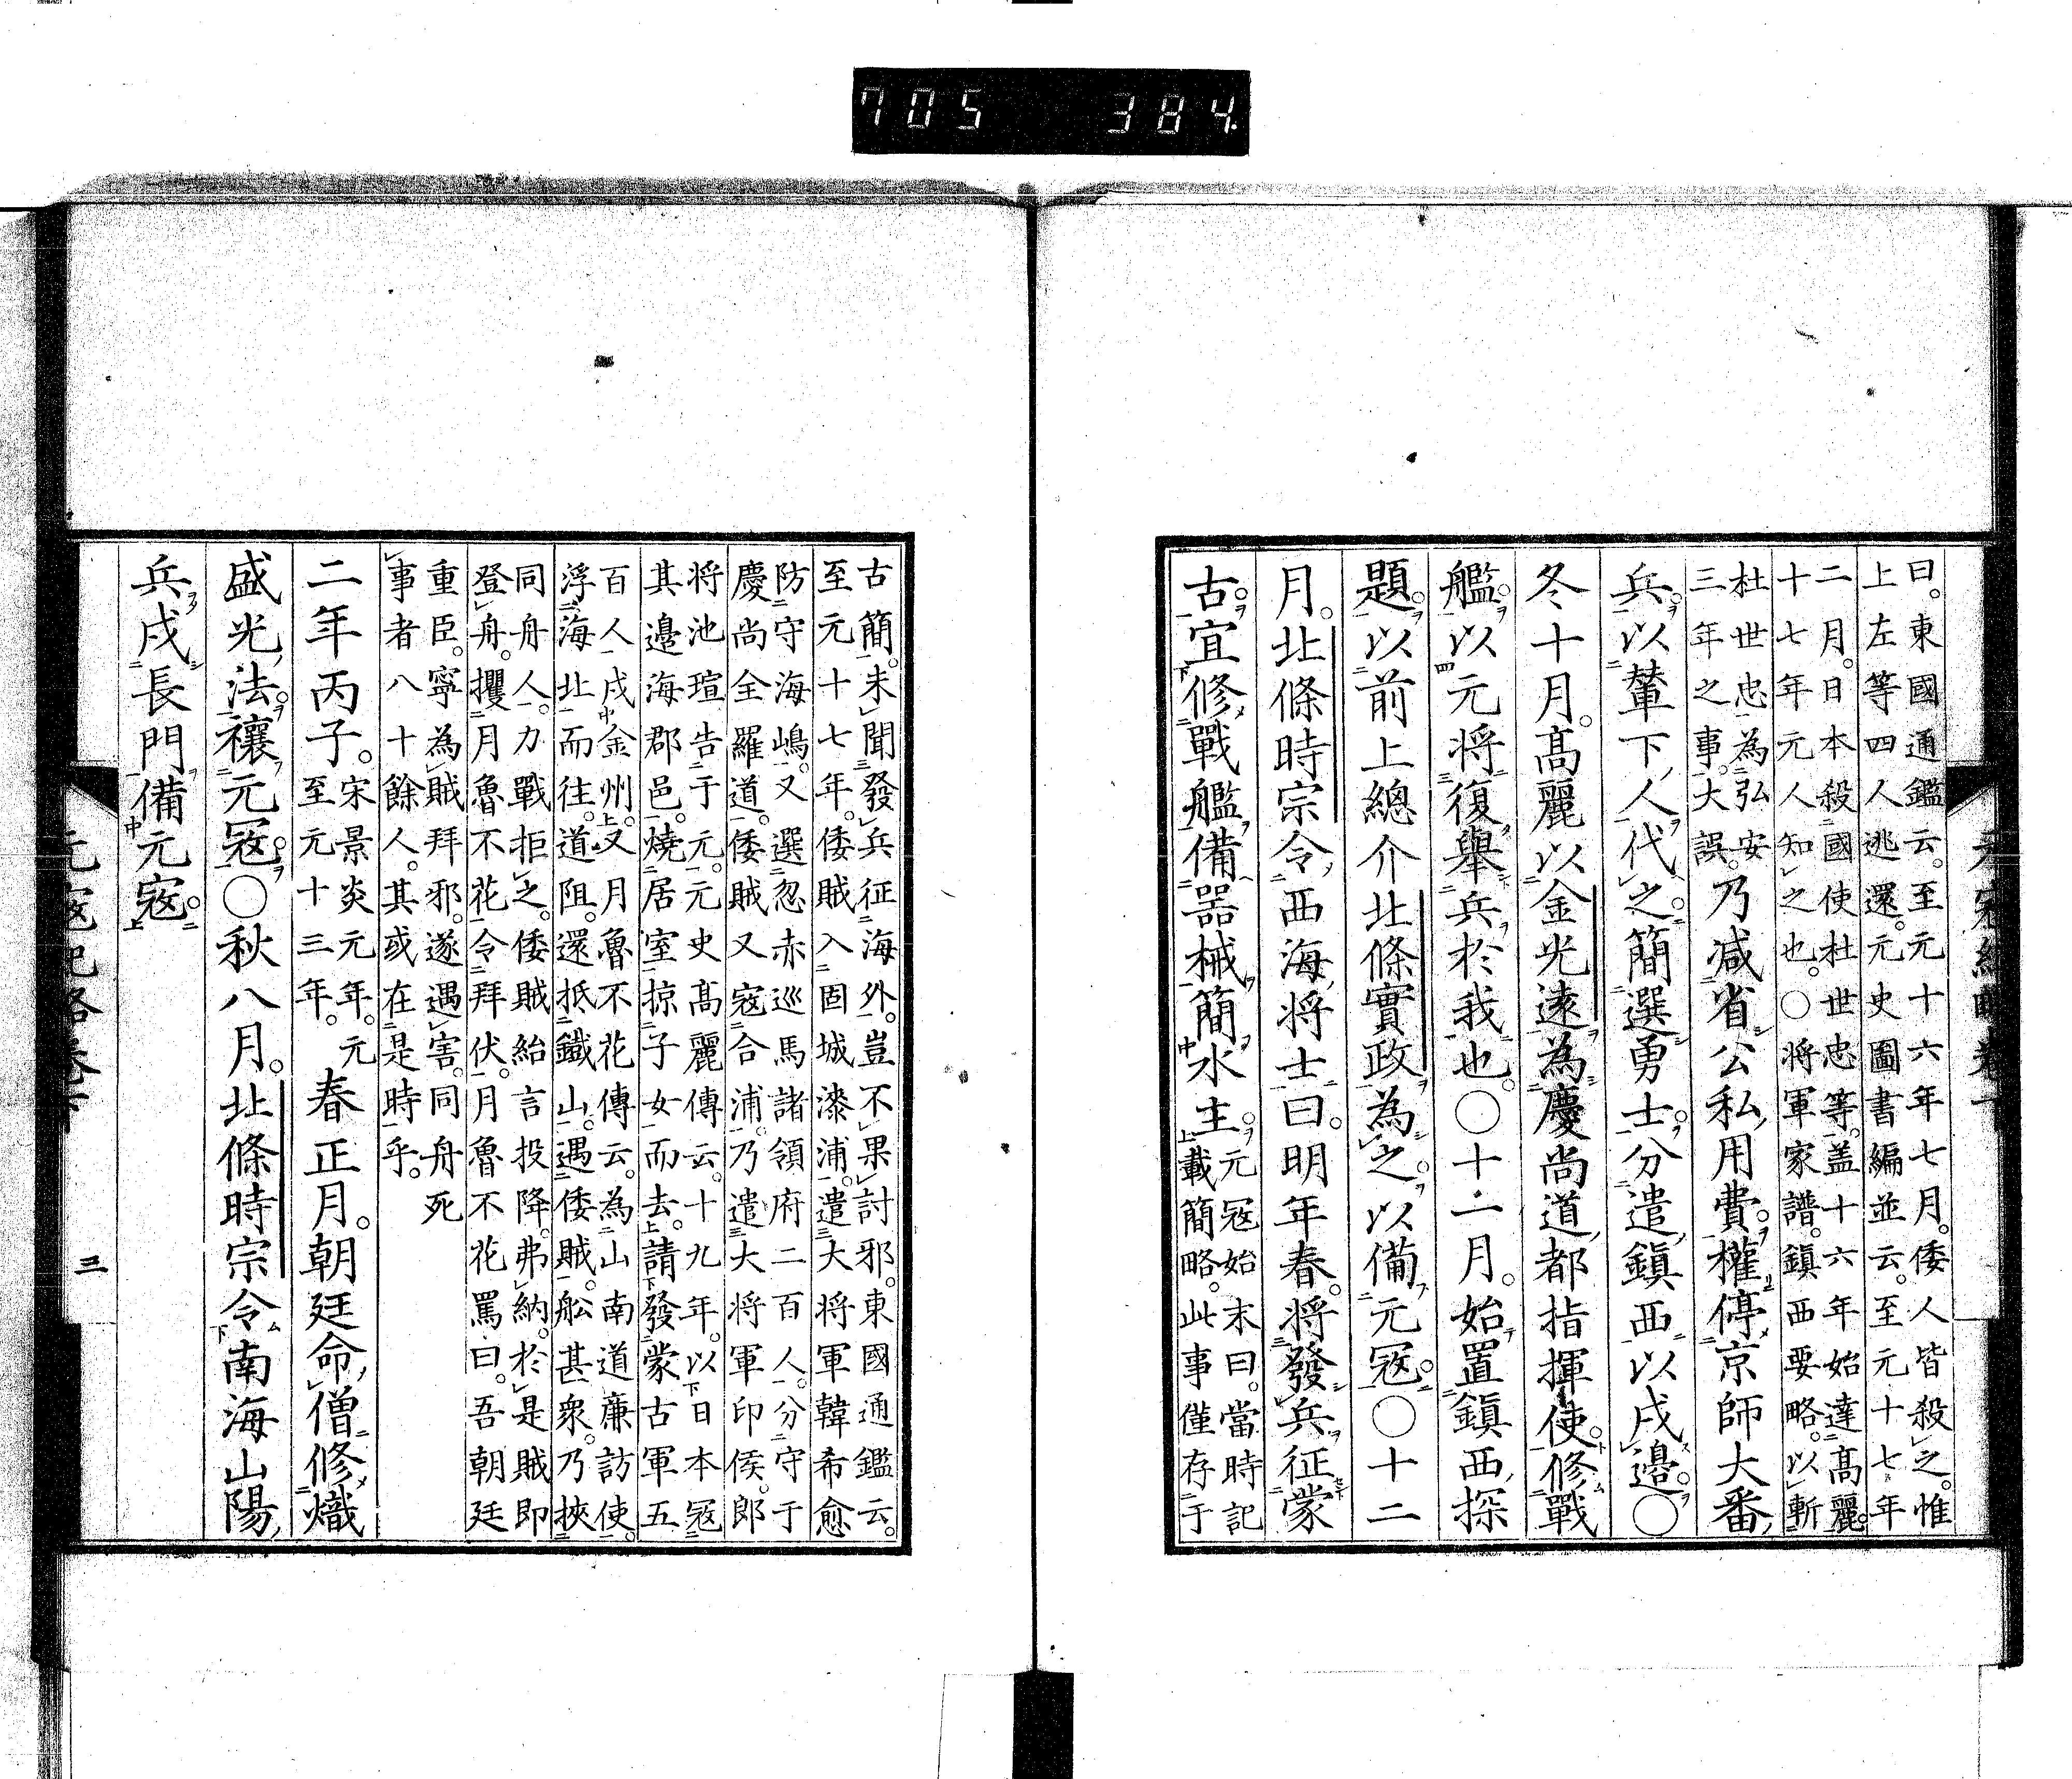 705 384
曰。東國通鑑云。至元十六年七月。倭人皆殺之。惟
上左等四人逃還。元史圖書編並云。至元十七年
二月。日本殺國使杜世忠等。盖十六年始達高麗。
十七年元人知之也。○将軍家譜。鎮西要略。以斬
杜世忠為弘安
三年之事。大誤。乃減省公私用費。權停京師大番
兵。以輦下人代之。簡選勇士。分遣鎮西以戍邊。○
冬十月。高麗以金光遠為慶尚道都指揮使。修戰
艦。以元将復舉兵於我也。○十一月。始置鎮西探
題。以前上總介北條實政為之。以備元寇。○十二
月。北條時宗令西海将士曰。明年春。将發兵征蒙
古。宜修戰艦。備器械。簡水主。元寇始末曰。當時記
載簡略。此事僅存于
古簡。未聞發兵征海外。豈不果討邪。東國通鑑云。
至元十七年。倭賊入固城漆浦。遣大将軍韓希愈
防守海嶋。又選忽赤巡馬諸領府二百人。分守于
慶尚全羅道。倭賊又寇合浦。乃遣大将軍印侯。郎
将池瑄告于元。元史高麗傳云。十九年。以日本寇
其邊海郡邑。燒居室。掠子女而去。請發蒙古軍五
百人戍金州。又月魯不花傳云。為山南道廉訪使。
浮海北而往。道阻。還抵鐵山。遇倭賊。舩甚衆。乃挾
同舟人。力戰拒之。倭賊紿言投降。弗納。於是賊即
登舟。攫月魯不花令拜伏。月魯不花罵曰。吾朝廷
重臣。寧為賊拜邪。遂遇害。同舟死
事者八十餘人。其或在是時乎。
二年丙子。宋景炎元年。元
至元十三年。春正月。朝廷命僧修熾
盛光法。禳元寇。○秋八月。北條時宗令南海山陽
兵戍長門備元寇。
元寇紀略卷下 三